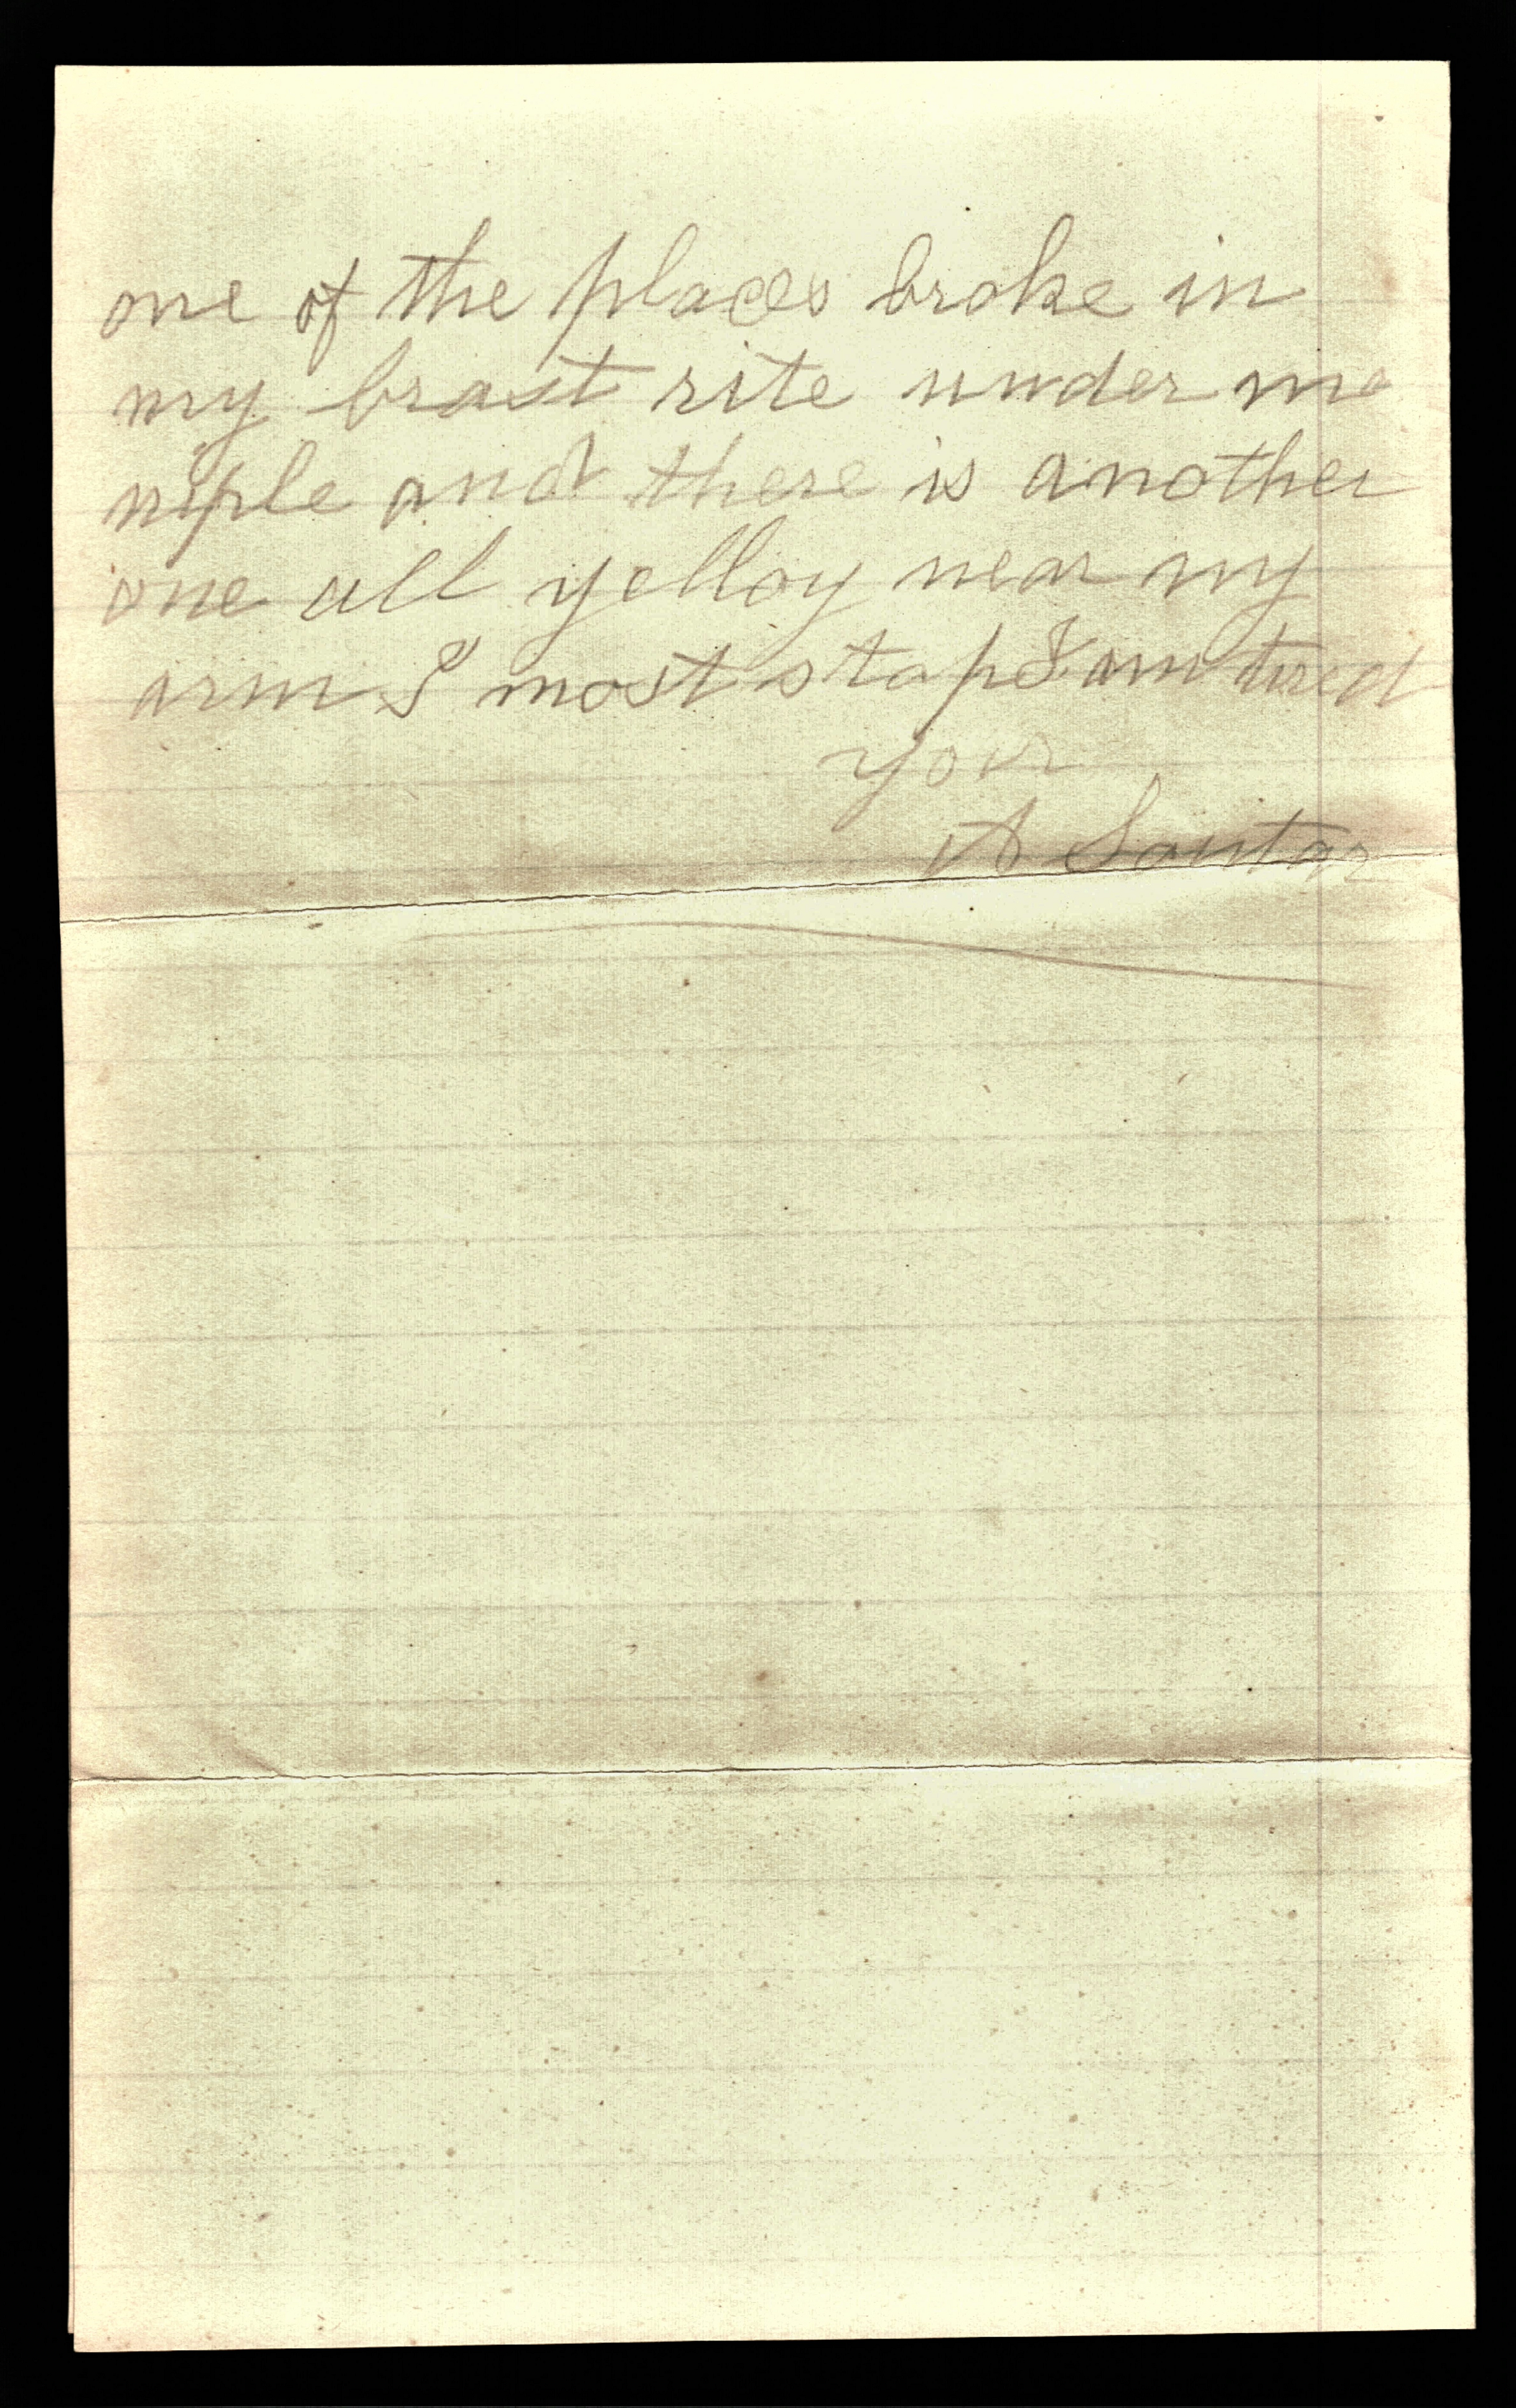 one of the places broke in
my brast rite under me
niple and there is another
one all yelloy near my
arm I most stop I am tired
your
A Soutar